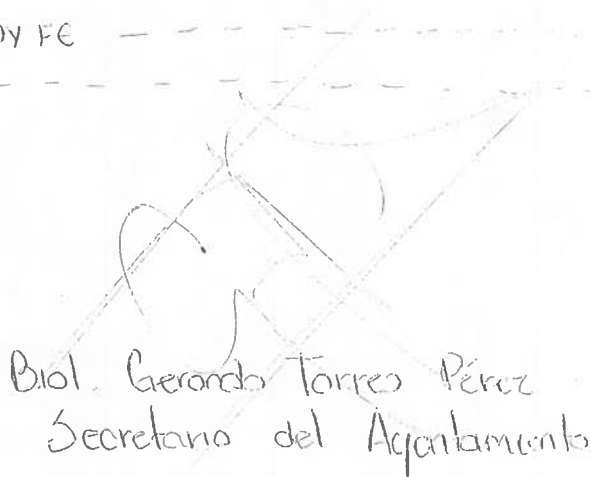 OY FE
Biol. Gerardo Torres Pérez
Secretario del Ayuntamiento